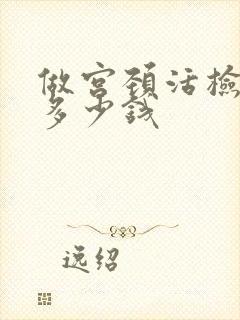 做宫颈活检
多少钱
逸绍